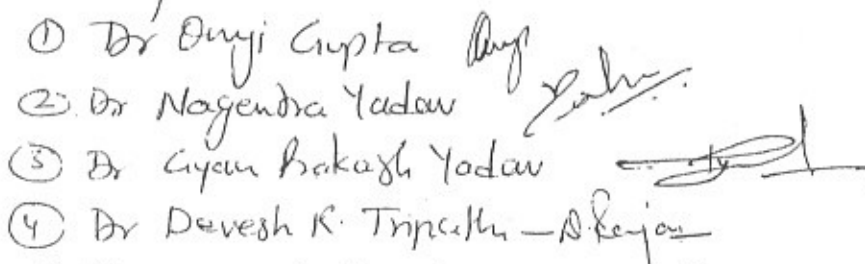 ① Dr Onyi Gupta
② Dr Nagendra Yadav
③ Dr Gyan Prakash Yadav
④ Dr Devesh K. Tripathi – D. Ranjan